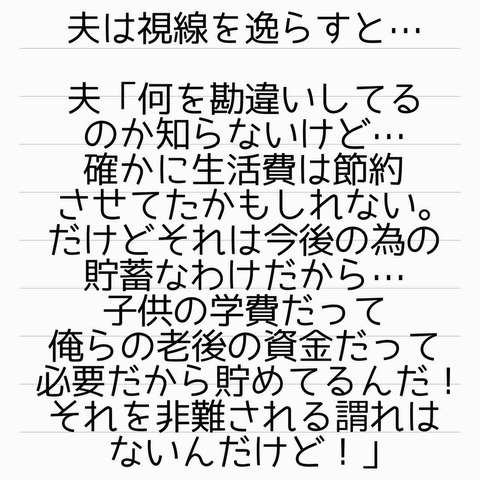 夫は視線を逸らすと…
夫「何を勘違いしてる
のか知らないけど…
確かに生活費は節約
させてたかもしれない。
だけどそれは今後の為の
貯蓄なわけだから…
子供の学費だって
俺らの老後の資金だって
必要だから貯めてるんだ！
それを非難される謂れは
ないんだけど！」